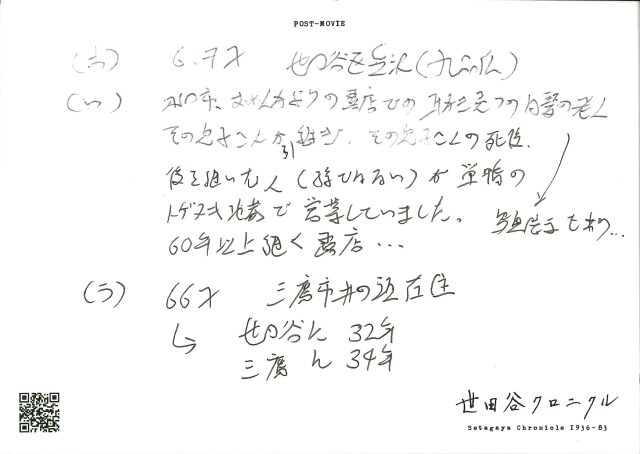 POST-MOVIE
(お) 6.7才 世田谷区奥沢(九品仏)
(い) ボロ市、ませんカよりの露店での 耳かき売りの白髪の老人
その息子さんが引継ぎ、その息子さんの死後、
後を継いだ人(孫ではない)が巣鴨の
トゲヌキ地蔵で営業していました。
60年以上継く露店...
も有り...
(う) 66才 三鷹市井の頭在住
↳ 世田谷に 32年
三鷹に 34年
世田谷クロニクル
Setagaya Chronicle 1936-83